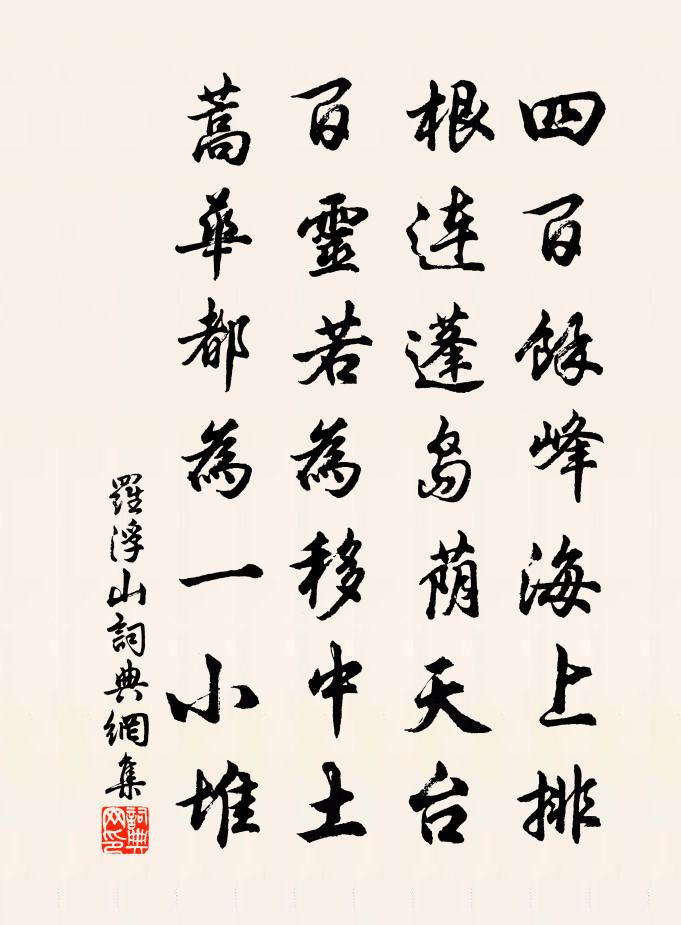 四百餘峰海上排
根連蓬島荫天台
百靈若為移中土
蒿華都為一小堆
羅浮山詞典網集
詞典网印